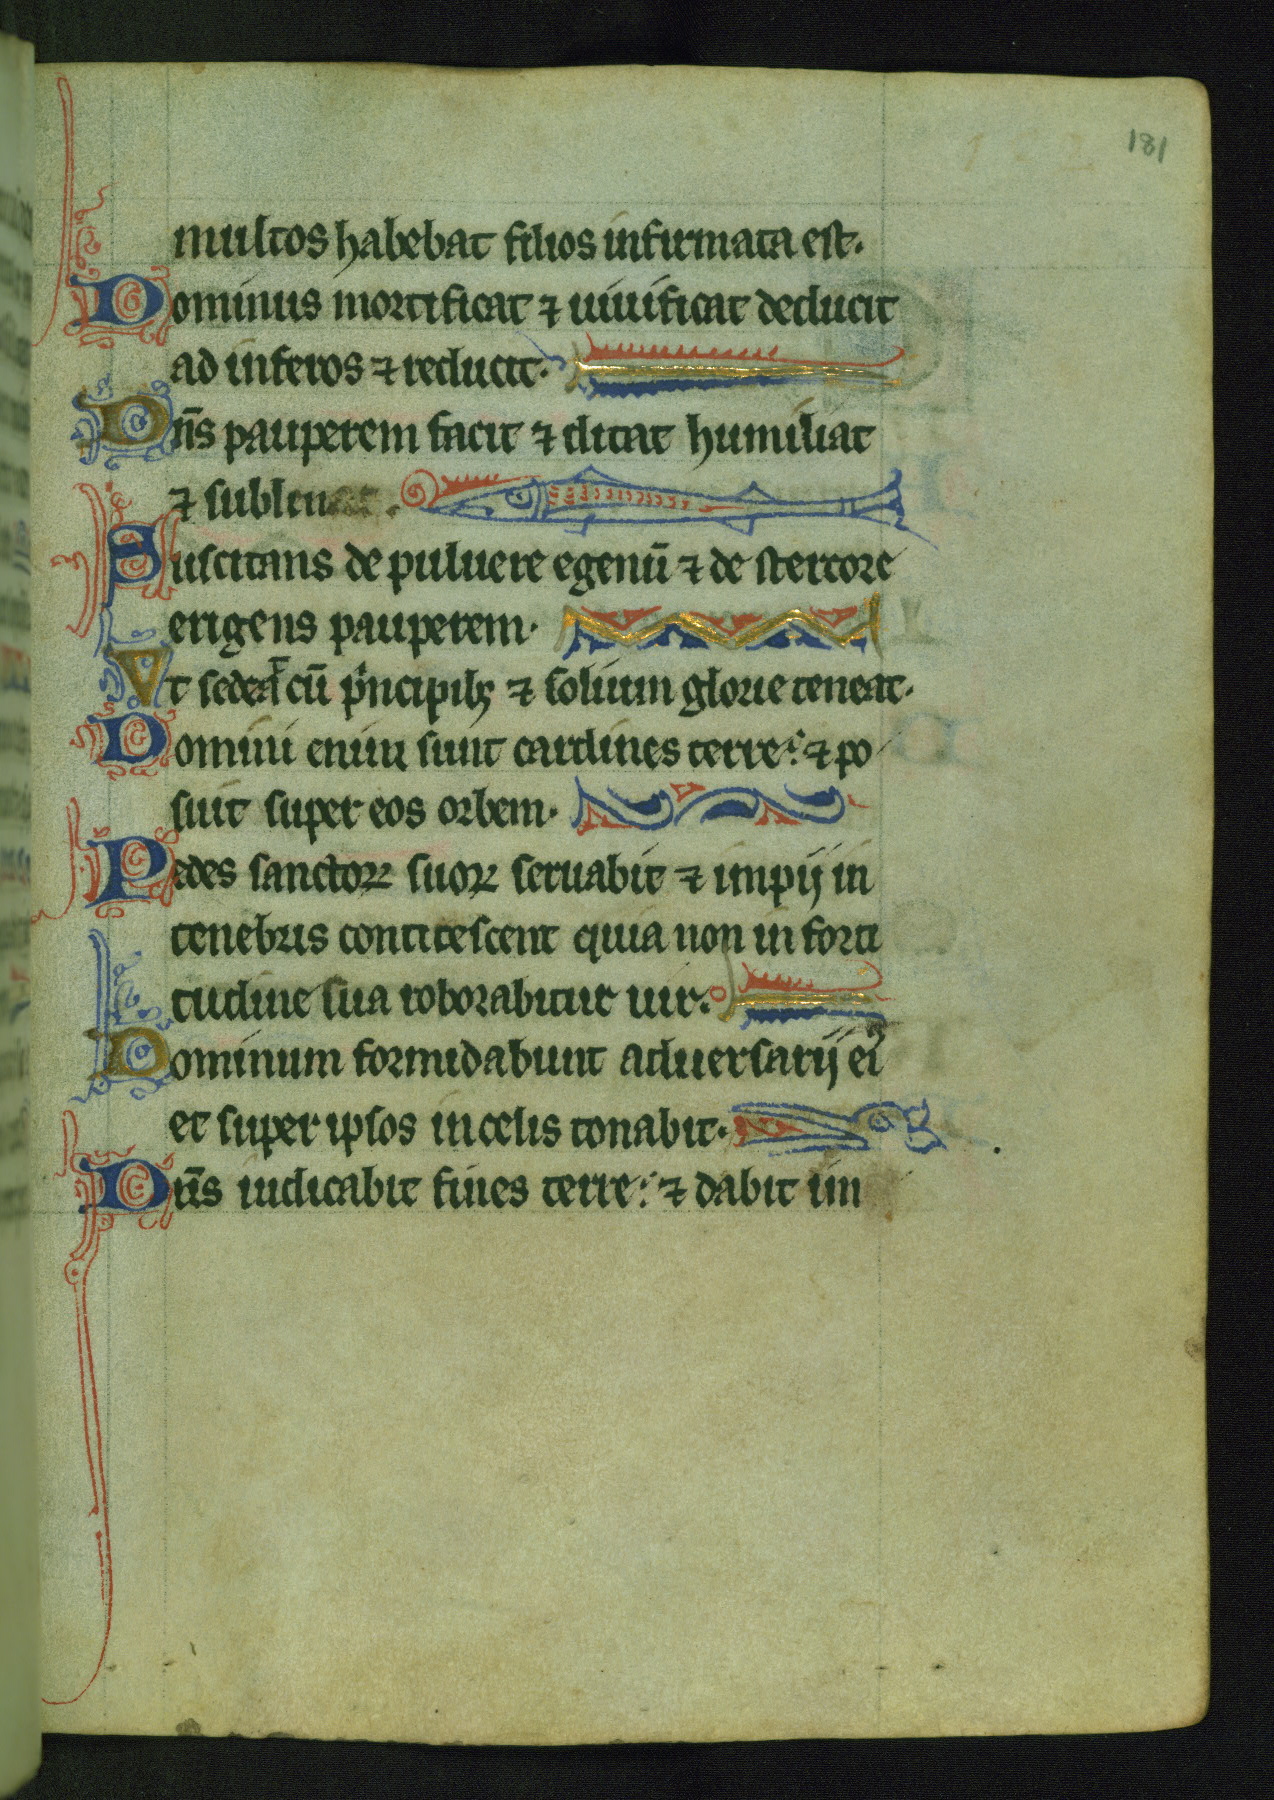 181
multos habebat filios infirmata est.
Dominus mortificat ⁊ uiuificat deducit
ad inferos ⁊ reducit.
Dn̄s pauperem facit ⁊ ditat humiliat
⁊ subleuat.
Suscitans de puluere egenū ⁊ de stercore
erigens pauperem.
Vt sedeat cū pⁱncipibꝫ ⁊ solium glorie teneat.
Domini enim sunt cardines terre: ⁊ po
suit super eos orbem.
Pedes sanctoꝝ suoꝝ seruabit ⁊ impij in
tenebris conticescent quia non in forti
tudine sua roborabitur uir.
Dominum formidabunt aduersarij eiꝰ
et super ipsos in celis tonabit.
Dn̄s iudicabit fines terre: ⁊ dabit im